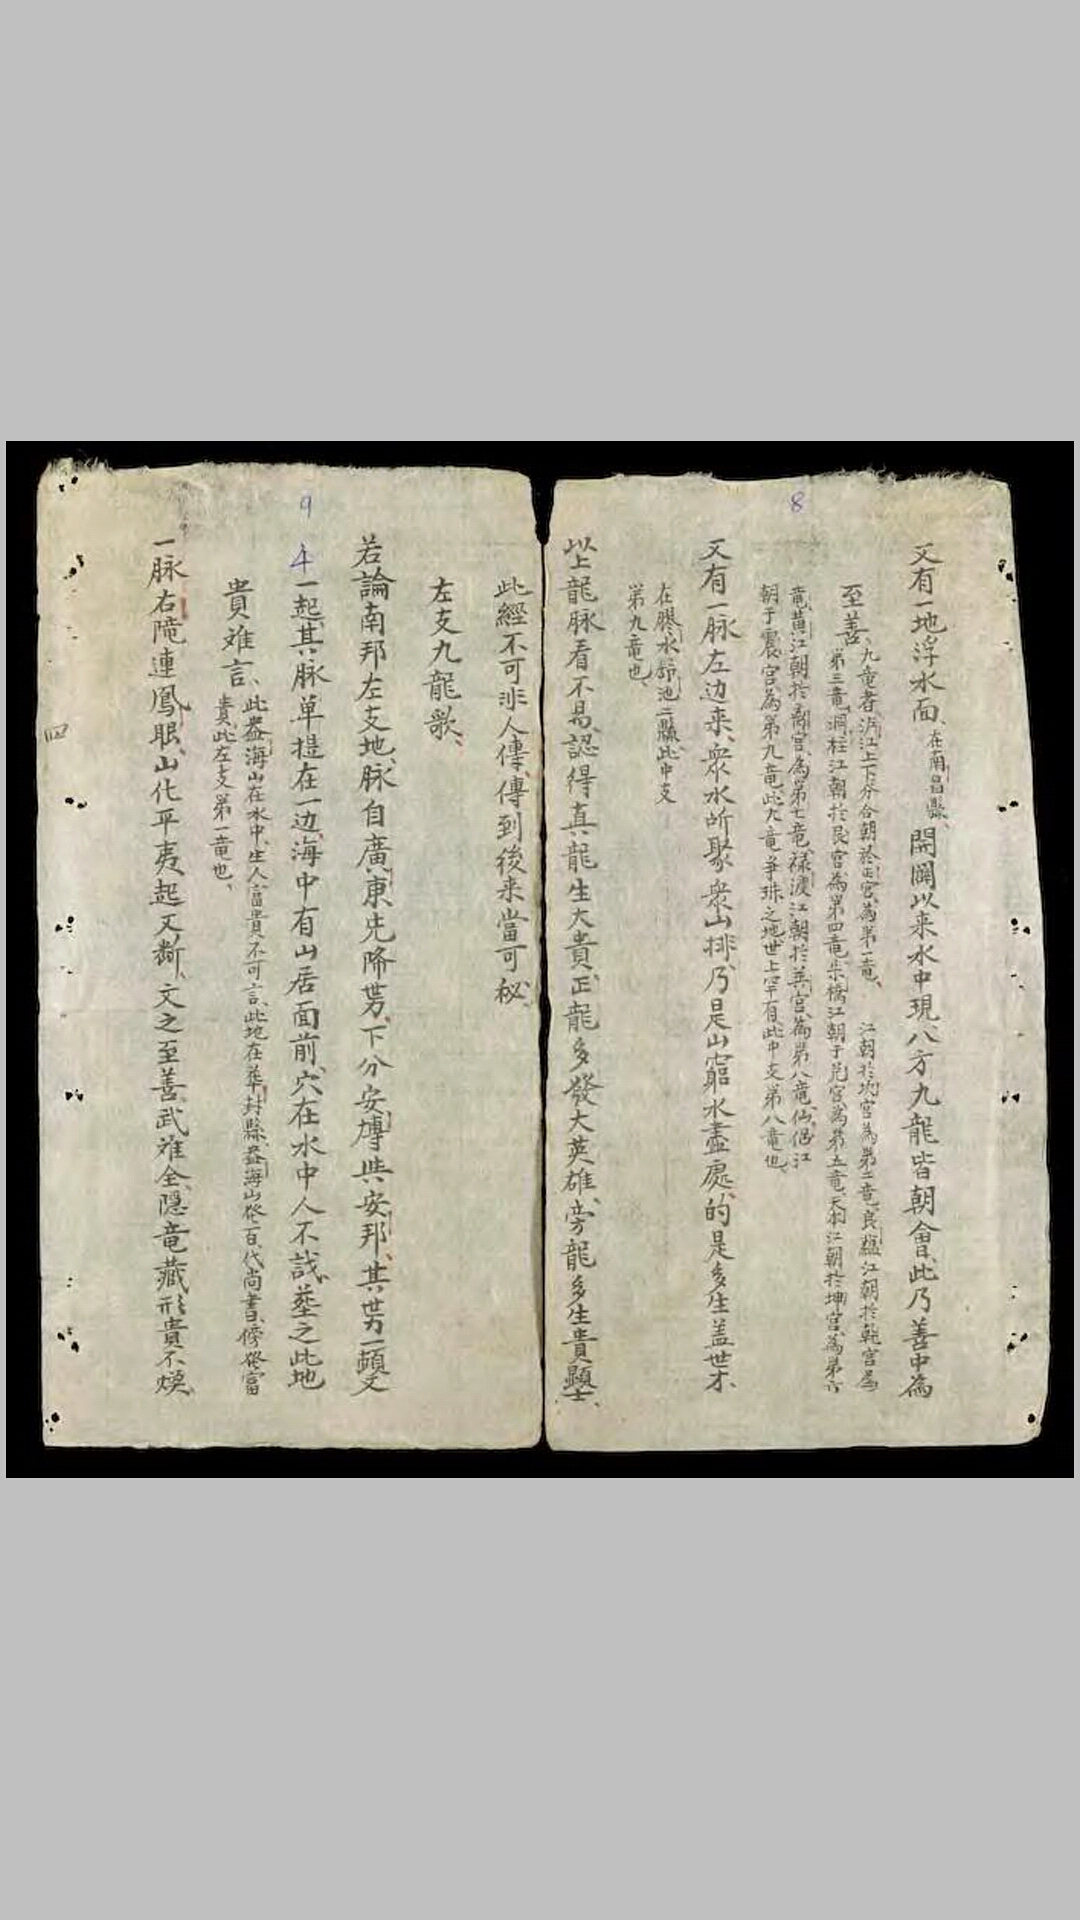 8
又有一地浮水面、在南昌縣、開闢以来水中現八方九龍皆朝會、此乃善中為
至善、九竜者、泸江上下分合朝於正宮、為第一竜、江朝於坎宮為第二竜、良蘊江朝於乾宮為
第三竜、洞柱江朝於艮宮為第四竜、朱橋江朝于兌宮為第五竜、天羽江朝於坤宮為第六
竜、黄江朝於离宮、為第七竜、禄渡江朝於巽宮、為第八竜、仙侶江
朝于震宮為第九竜、此九竜争珠之地世上罕有、此中支第八竜也、
又有一脉左边来、衆水所聚衆山排、乃是山窮水盡處、的是多生盖世才、
在膠水舒池二縣、此中支
第九竜也、
以上龍脉看不易、認得真龍生大貴、正龍多發大英雄、旁龍多生貴顯士、
此經不可非人傳、傳到後来當可秘、
9
左支九龍歌、
若論南邦左支地、脉自廣東先降势、下分安博与安邦、其势一頓又
一起、其脉单提在一边、海中有山居面前、穴在水中人不識、塟之此地
貴难言、此盎海山在水中、生人富貴不可言、此地在華封縣、盎海山發百代尚書、傍發富
貴、此左支第一竜也、
一脉右掩連鳳眼、山化平夷、起又断、文之至善、武难全、隐竜藏形貴不煥、
四